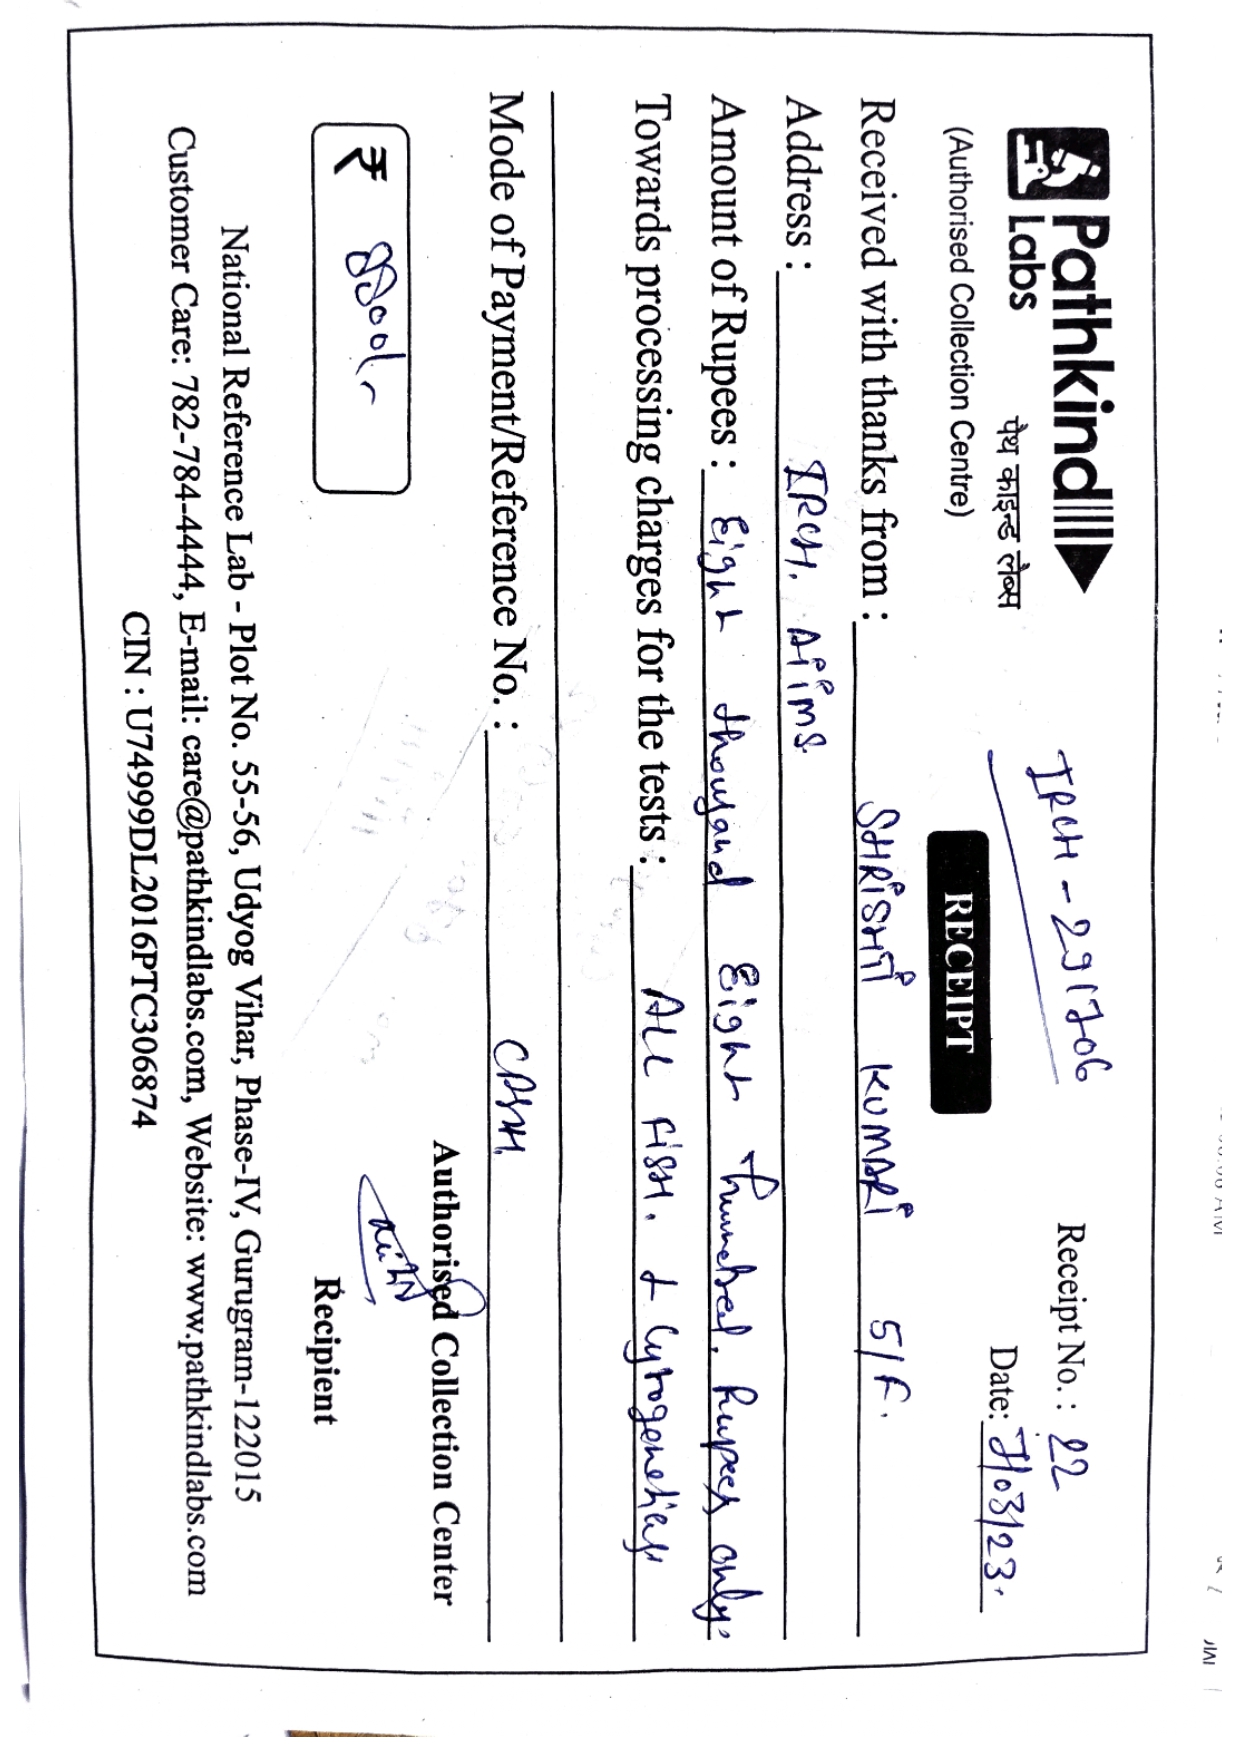 Pathkind
Labs पैथ काइन्ड लैब्स
(Authorised Collection Centre)
IRCH - 291706
RECEIPT
Receipt No. : 22
Date: 7/03/23.
Received with thanks from : SHRiSHTi KUMARi 5/F.
Address : IRCH. AiiMS.
Amount of Rupees : Eight thousand Eight hundred. Rupees only.
Towards processing charges for the tests : ALL FiSH. + Cytogenetics
Mode of Payment/Reference No. : CASH.
₹ 8800/-
Authorised Collection Center
Recipient
National Reference Lab - Plot No. 55-56, Udyog Vihar, Phase-IV, Gurugram-122015
Customer Care: 782-784-4444, E-mail: care@pathkindlabs.com, Website: www.pathkindlabs.com
CIN : U74999DL2016PTC306874